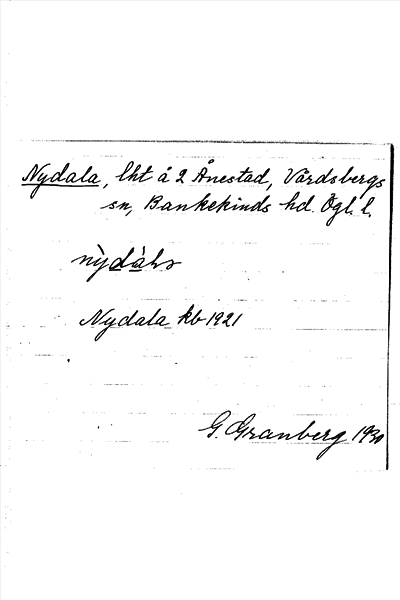 Nydala, lht å 2 Ånestad, Vårdsbergs
sn, Bankekinds hd. Ögl. l.
Nydala kb 1921
G. Granberg 1930